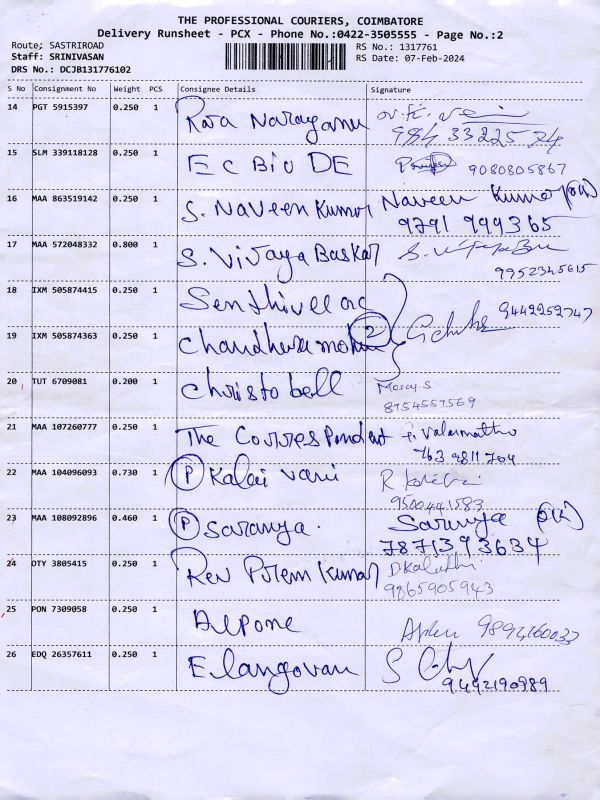 THE PROFESSIONAL COURIERS, COIMBATORE
Delivery Runsheet - PCX - Phone No.:0422-3505555 - Page No.:2
Route; SASTRIROAD
Staff: SRINIVASAN
DRS No.: DCJB131776102
RS No.: 1317761
RS Date: 07-Feb-2024
S No Consignment No Weight PCS Consignee Details Signature
14 PGT 5915397 0.250 1 Narayanan
15 SLM 339118128 0.250 1 E C BIO DE 9080805867
16 MAA 863519142 0.250 1 S. Naveen Kumar Naveen Kumar (OK)
9791 999365
17 MAA 572048332 0.800 1 S. Vijaya Baskar
9952345615
18 IXM 505874415 0.250 1 9442252747
19 IXM 505874363 0.250 1 2
20 TUT 6709081 0.200 1 Christobell Mercy.S
8754557569
21 MAA 107260777 0.250 1 The Correspondent
763 9811 704
22 MAA 104096093 0.730 1 P Kalai vani
9500441583
23 MAA 108092896 0.460 1 P Saranya. Saranya (OK)
7871393634
24 OTY 3805415 0.250 1 Rev Prem Kumar
9865905943
25 PON 7309058 0.250 1
26 EDQ 26357611 0.250 1 Elangovan
9442190989